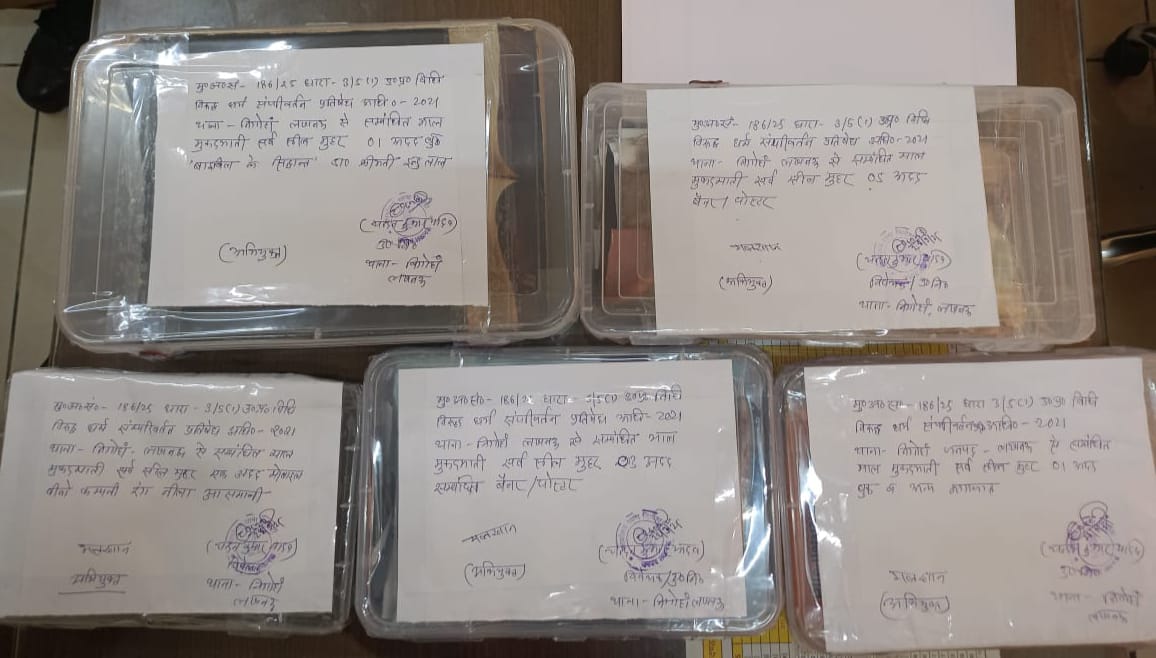 मु०अ०सं०- 186/25 धारा- 3/5(1) उ०प्र० विधि
विरुद्ध धर्म संपरिवर्तन प्रतिषेध अधि०- 2021
थाना- निगोहाँ लखनऊ से सम्बंधित माल
मुकदमाती सर्व सील मुहर 01 अदद बुक
"बाइबिल के सिद्धान्त" डा० श्रीमती लाल
(अभियुक्त)
उ०नि०
थाना- निगोहाँ
लखनऊ
मु०अ०सं०- 186/25 धारा- 3/5(1) उ०प्र० विधि
विरुद्ध धर्म संपरिवर्तन प्रतिषेध अधि०- 2021
थाना- निगोहाँ लखनऊ से सम्बंधित माल
मुकदमाती सर्व सील मुहर 05 अदद
बैनर/पोस्टर
मलखान
(अभियुक्त)
विवेचक/उ०नि०
थाना- निगोहाँ, लखनऊ
मु०अ०सं०- 186/25 धारा- 3/5(1) उ०प्र० विधि
विरुद्ध धर्म संपरिवर्तन प्रतिषेध अधि०- 2021
थाना- निगोहाँ- लखनऊ से सम्बंधित माल
मुकदमाती सर्व सील मुहर एक अदद मोबाइल
वीवो कम्पनी रंग नीला आसमानी
मलखान
अभियुक्त
विवेचक
थाना- निगोहाँ
लखनऊ
मु०अ०सं०- 186/25 धारा- 3/5(1) उ०प्र० विधि
विरुद्ध धर्म संपरिवर्तन प्रतिषेध अधि- 2021
थाना- निगोहाँ लखनऊ से सम्बंधित माल
मुकदमाती सर्व सील मुहर 03 अदद
सम्बंधित बैनर/पोस्टर
मलखान
(अभियुक्त)
विवेचक/उ०नि०
थाना- निगोहाँ लखनऊ
मु०अ०सं०- 186/25 धारा 3/5(1) उ०प्र० विधि
विरुद्ध धर्म संपरिवर्तन अधि०- 2021
थाना- निगोहाँ जनपद- लखनऊ से सम्बंधित
माल मुकदमाती सर्व सील मुहर 01 अदद
बुक व अन्य कागजात
मलखान
(अभियुक्त)
उ०नि०
थाना- निगोहाँ
लखनऊ